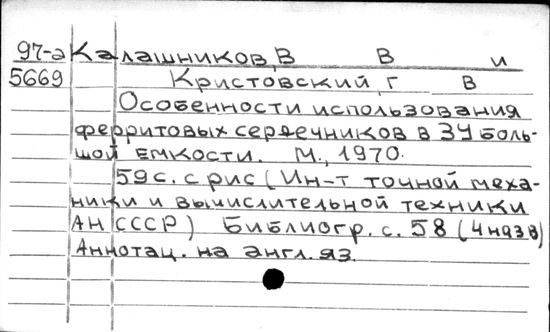 97-а Калашников, В В и
5669 Кристовский, Г В
Особенности использования
ферритовых сердечников в ЗУ боль-
шой емкости. М., 1970.
59 с. с рис (Ин-т точной меха-
ники и вычислительной техники
АН СССР) Библиогр. с. 58 (4 назв)
Аннотац. на англ. яз.